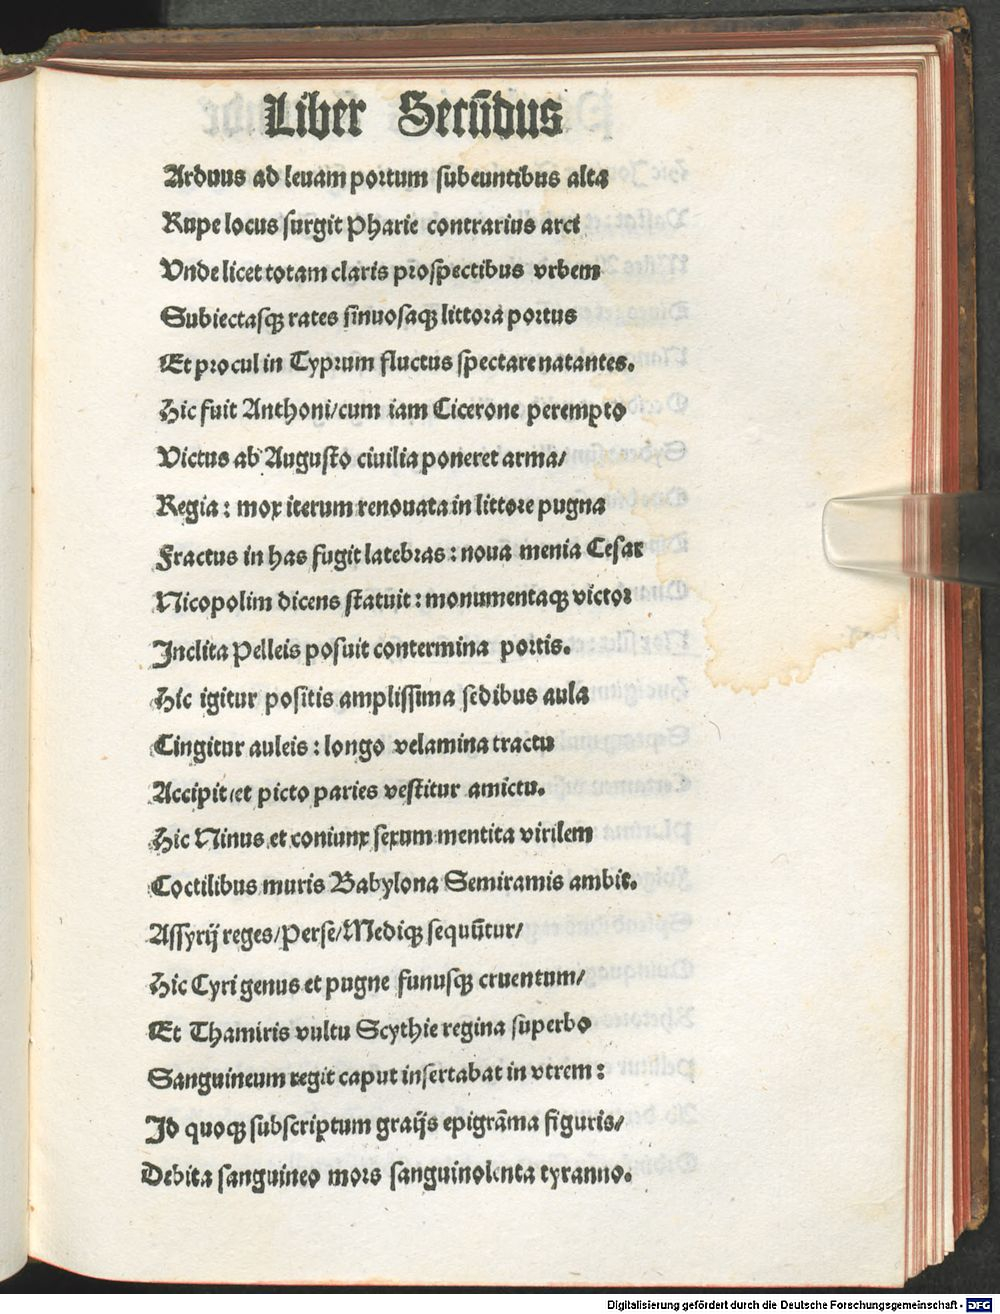 Liber Secūdus
Arduus ad leuam portum subeuntibus alta
Rupe locus surgit Pharie contrarius arci
Vnde licet totam claris prospectibus vrbem
Subiectasqꝫ rates sinuosaqꝫ littora portus
Et procul in Cyprum fluctus spectare natantes.
Hic fuit Anthoni/cum iam Cicerone perempto
Victus ab Augusto ciuilia poneret arma/
Regia: mox iterum renouata in littore pugna
Fractus in has fugit latebras: noua menia Cesar
Nicopolim dicens statuit: monumentaqꝫ victor
Inclita Pelleis posuit contermina portis.
Hic igitur positis amplissima sedibus aula
Cingitur auleis: longo velamina tractu
Accipit/et picto paries vestitur amictu.
Hic Ninus et coniunx sexum mentita virilem
Coctilibus muris Babylona Semiramis ambit.
Assyrij reges/Perse/Mediqꝫ sequūtur/
Hic Cyri genus et pugne funusqꝫ cruentum/
Et Thamiris vultu Scythie regina superbo
Sanguineum regit caput insertabat in vtrem:
Id quoqꝫ subscriptum graijs epigrāma figuris/
Debita sanguineo mors sanguinolenta tyranno.
Digitalisierung gefördert durch die Deutsche Forschungsgemeinschaft - DFG